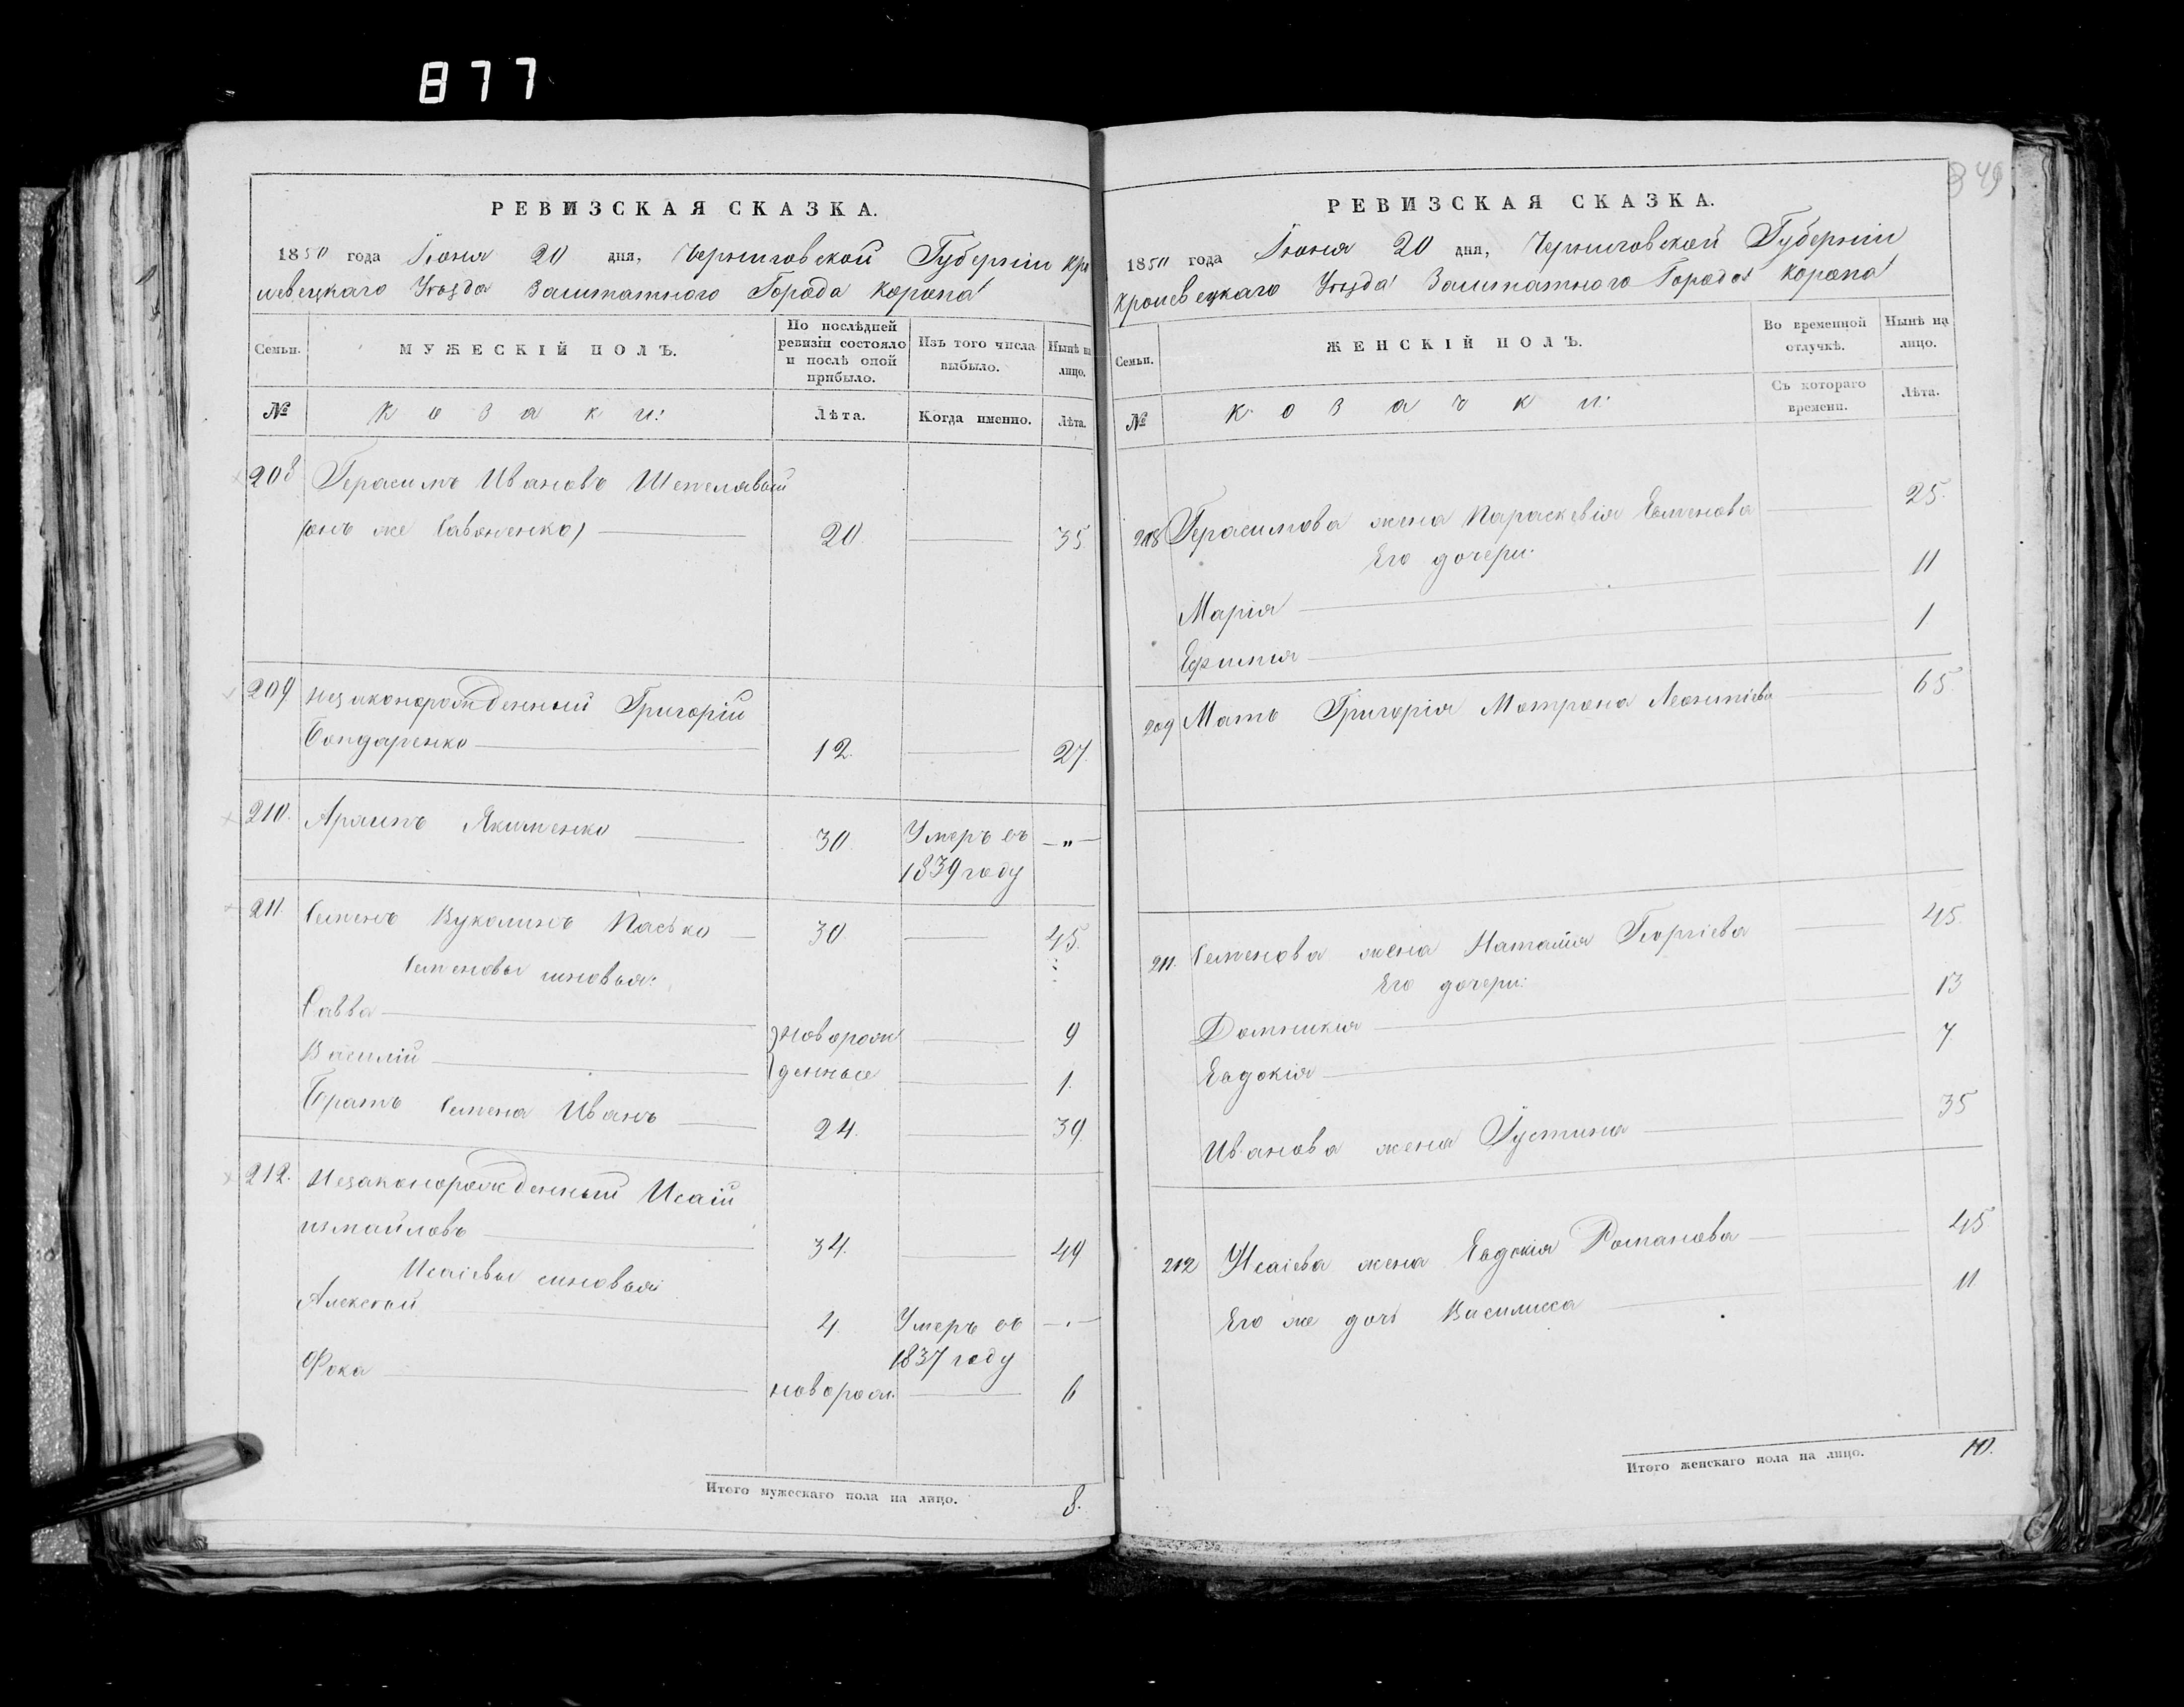 877
РЕВИЗСКАЯ СКАЗКА.
1850 года Іюня 20 дня, Черниговской Губерніи Кро
левецкаго Уѣзда Заштатного Города Коропа
Семьи.
МУЖЕСКІЙ ПОЛЪ.
По послѣдней ревизіи состояло и послѣ оной прибыло.
Изъ того числа выбыло.
Нынѣ на лицо.
№
Козаки:
Лѣта.
Когда именно.
Лѣта.
208 Герасимъ Ивановъ Шепелявый
(онъ же Савоненко) 20. 35
209 незаконорожденный Григорій
Бондаренко 12. 27.
210. Архипъ Якименко 30. Умеръ въ —„—
1839 году
211. Семенъ Вуколинъ Пасько 30. 45.
Семеновы сыновья:
Савва } новорож 9
Василій } денные 1.
Братъ Семена Иванъ 24. 39.
212. Незаконорожденный Исаій
Измайловъ 34. 49
Исаіевы сыновья:
Алексѣй 4. Умеръ въ —„—
1837 году
Фока новорож. 6
Итого мужескаго пола на лицо. 8.
349
РЕВИЗСКАЯ СКАЗКА.
1850 года Іюня 20 дня, Черниговской Губерніи
Кролевецкаго Уѣзда Заштатного Города Коропа
Семьи.
ЖЕНСКІЙ ПОЛЪ.
Во временной отлучкѣ.
Нынѣ на лицо.
№
Козачки:
Съ котораго времени.
Лѣта.
208 Герасимова жена Параскевія Евменова 25.
Его дочери:
Марія 11
Ефимія 1
209 Мать Григорія Мотрона Леонтіева 65.
211. Семенова жена Наталія Георгіева 45.
Его дочери:
Домникия 13
Евдокія 7
Иванова жена Іустина 35
212 Исаіева жена Евдокія Романова 45
Его же дочь Василисса 11.
Итого женскаго пола на лицо. 10.